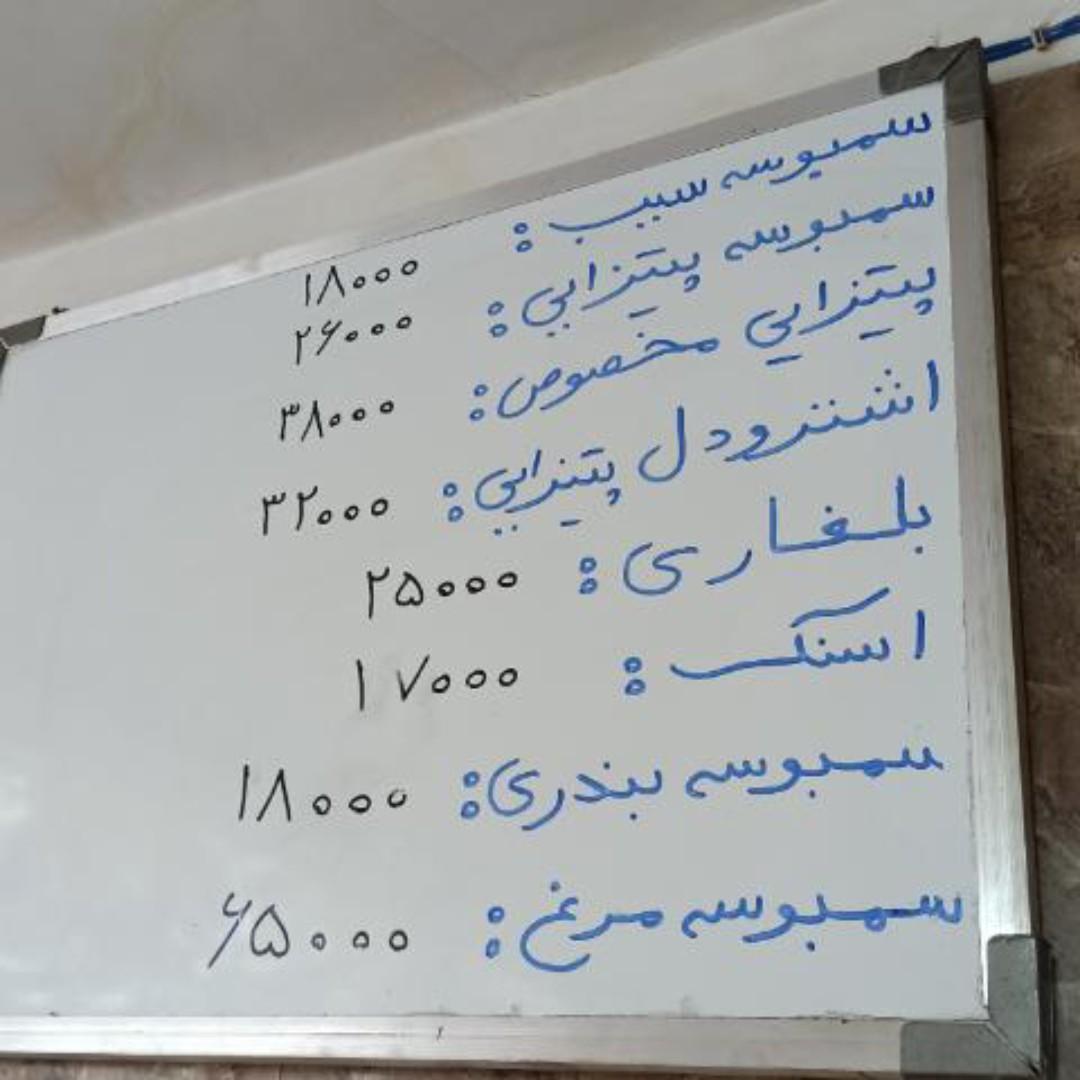 سمبوسه سیب : ۱۸۰۰۰
سمبوسه پیتزایی : ۲۶۰۰۰
پیتزایی مخصوص : ۳۸۰۰۰
اشترودل پیتزایی : ۳۲۰۰۰
بلغاری : ۲۵۰۰۰
اسنک : ۱۷۰۰۰
سمبوسه بندری : ۱۸۰۰۰
سمبوسه مرغ : ۶۵۰۰۰